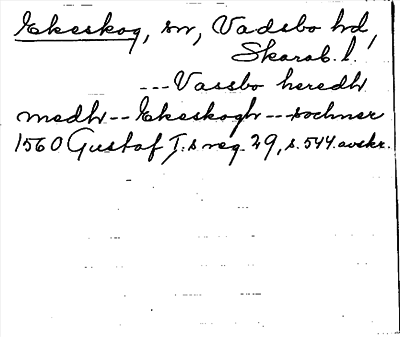 Ekeskog, sn, Vadsbo hd,
Skarab. l.
--- Vassbo heredh
medh -- Ekeskogh -- sochner
1560 Gustaf I:s reg. 29, s. 544. avskr.